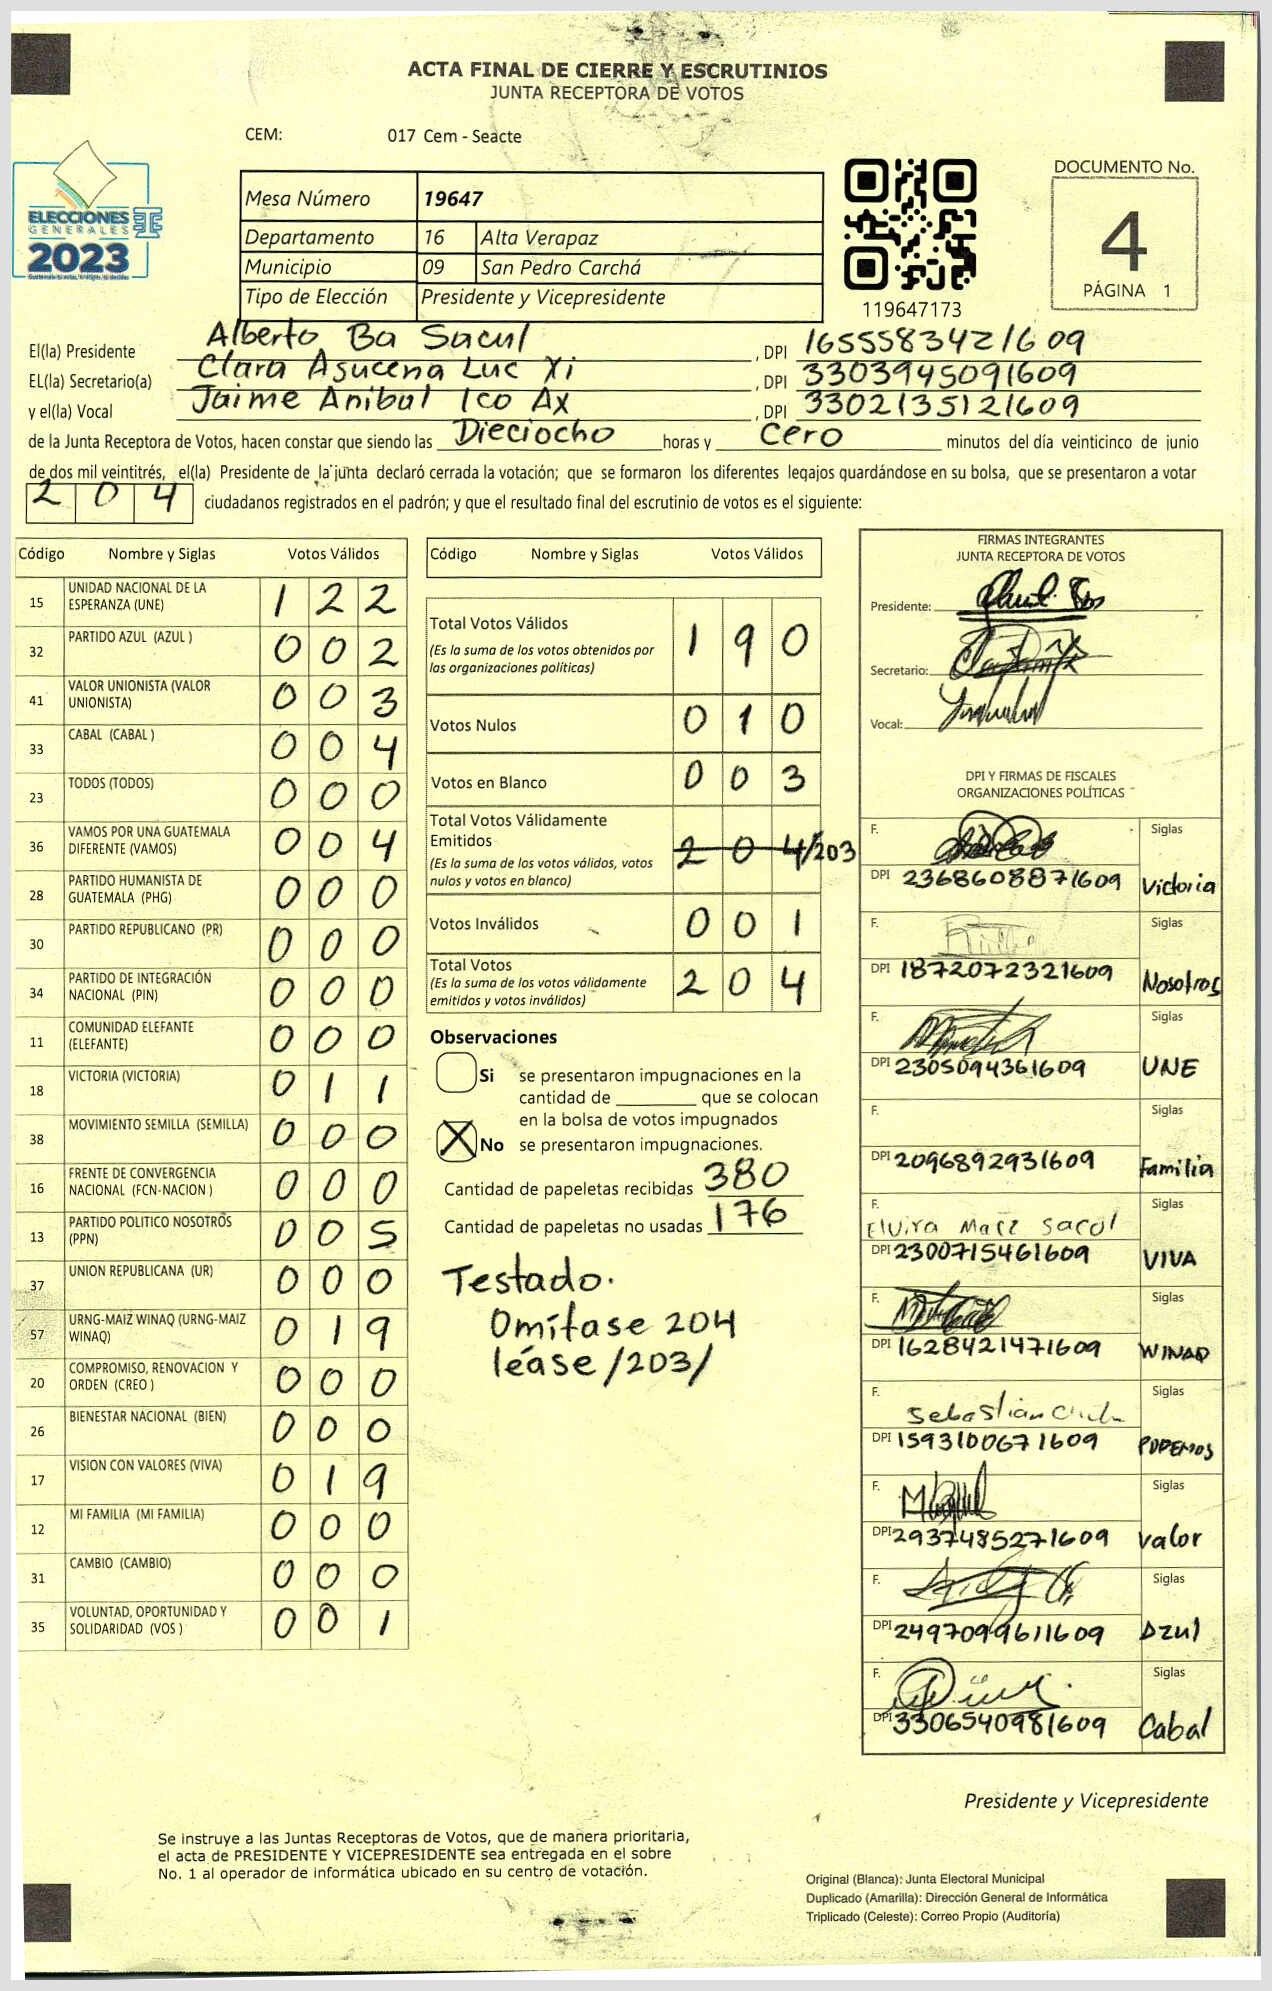 ACTA FINAL DE CIERRE Y ESCRUTINIOS
JUNTA RECEPTORA DE VOTOS
CEM: 017 Cem - Seacte
ELECCIONES
GENERALES
2023
Mesa Número 19647
Departamento 16 Alta Verapaz
Municipio 09 San Pedro Carchá
Tipo de Elección Presidente y Vicepresidente
119647173
DOCUMENTO No.
4
PÁGINA 1
El(la) Presidente Alberto Ba Sacul, DPI 1655583421609
EL(la) Secretario(a) Clara Asucena Luc Xi, DPI 3303945091609
y el(la) Vocal Jaime Anibal Ico Ax, DPI 3302135121609
de la Junta Receptora de Votos, hacen constar que siendo las Dieciocho horas y Cero minutos del día veinticinco de junio
de dos mil veintitrés, el(la) Presidente de la junta declaró cerrada la votación; que se formaron los diferentes legajos guardándose en su bolsa, que se presentaron a votar
204 ciudadanos registrados en el padrón; y que el resultado final del escrutinio de votos es el siguiente:
Código Nombre y Siglas Votos Válidos
15 UNIDAD NACIONAL DE LA ESPERANZA (UNE) 122
32 PARTIDO AZUL (AZUL ) 002
41 VALOR UNIONISTA (VALOR UNIONISTA) 003
33 CABAL (CABAL ) 004
23 TODOS (TODOS) 000
36 VAMOS POR UNA GUATEMALA DIFERENTE (VAMOS) 004
28 PARTIDO HUMANISTA DE GUATEMALA (PHG) 000
30 PARTIDO REPUBLICANO (PR) 000
34 PARTIDO DE INTEGRACIÓN NACIONAL (PIN) 000
11 COMUNIDAD ELEFANTE (ELEFANTE) 000
18 VICTORIA (VICTORIA) 011
38 MOVIMIENTO SEMILLA (SEMILLA) 000
16 FRENTE DE CONVERGENCIA NACIONAL (FCN-NACION ) 000
13 PARTIDO POLITICO NOSOTROS (PPN) 005
37 UNION REPUBLICANA (UR) 000
57 URNG-MAIZ WINAQ (URNG-MAIZ WINAQ) 019
20 COMPROMISO, RENOVACION Y ORDEN (CREO ) 000
26 BIENESTAR NACIONAL (BIEN) 000
17 VISION CON VALORES (VIVA) 019
12 MI FAMILIA (MI FAMILIA) 000
31 CAMBIO (CAMBIO) 000
35 VOLUNTAD, OPORTUNIDAD Y SOLIDARIDAD (VOS ) 001
Código Nombre y Siglas Votos Válidos
Total Votos Válidos 190
(Es la suma de los votos obtenidos por
las organizaciones políticas)
Votos Nulos 010
Votos en Blanco 003
Total Votos Válidamente
Emitidos 204/203
(Es la suma de los votos válidos, votos
nulos y votos en blanco)
Votos Inválidos 001
Total Votos 204
(Es la suma de los votos válidamente
emitidos y votos inválidos)
Observaciones
Si se presentaron impugnaciones en la
cantidad de ________ que se colocan
en la bolsa de votos impugnados
X No se presentaron impugnaciones.
Cantidad de papeletas recibidas 380
Cantidad de papeletas no usadas 176
Testado.
Omítase 204
léase /203/
FIRMAS INTEGRANTES
JUNTA RECEPTORA DE VOTOS
Presidente:
Secretario:
Vocal:
DPI Y FIRMAS DE FISCALES
ORGANIZACIONES POLÍTICAS
F. Siglas
DPI 2368608871609 Victoria
F. Siglas
DPI 1872072321609 Nosotros
F. Siglas
DPI 2305094361609 UNE
F. Siglas
DPI 2096892931609 Familia
F. Elvira Maez Sacul Siglas
DPI 2300715461609 VIVA
F. Siglas
DPI 1628421471609 WINAQ
F. Sebastian Siglas
DPI 1593100671609 PODEMOS
F. Siglas
DPI 2937485271609 Valor
F. Siglas
DPI 2497099611609 Azul
F. Siglas
DPI 3306540981609 Cabal
Presidente y Vicepresidente
Se instruye a las Juntas Receptoras de Votos, que de manera prioritaria,
el acta de PRESIDENTE Y VICEPRESIDENTE sea entregada en el sobre
No. 1 al operador de informática ubicado en su centro de votación.
Original (Blanca): Junta Electoral Municipal
Duplicado (Amarilla): Dirección General de Informática
Triplicado (Celeste): Correo Propio (Auditoría)